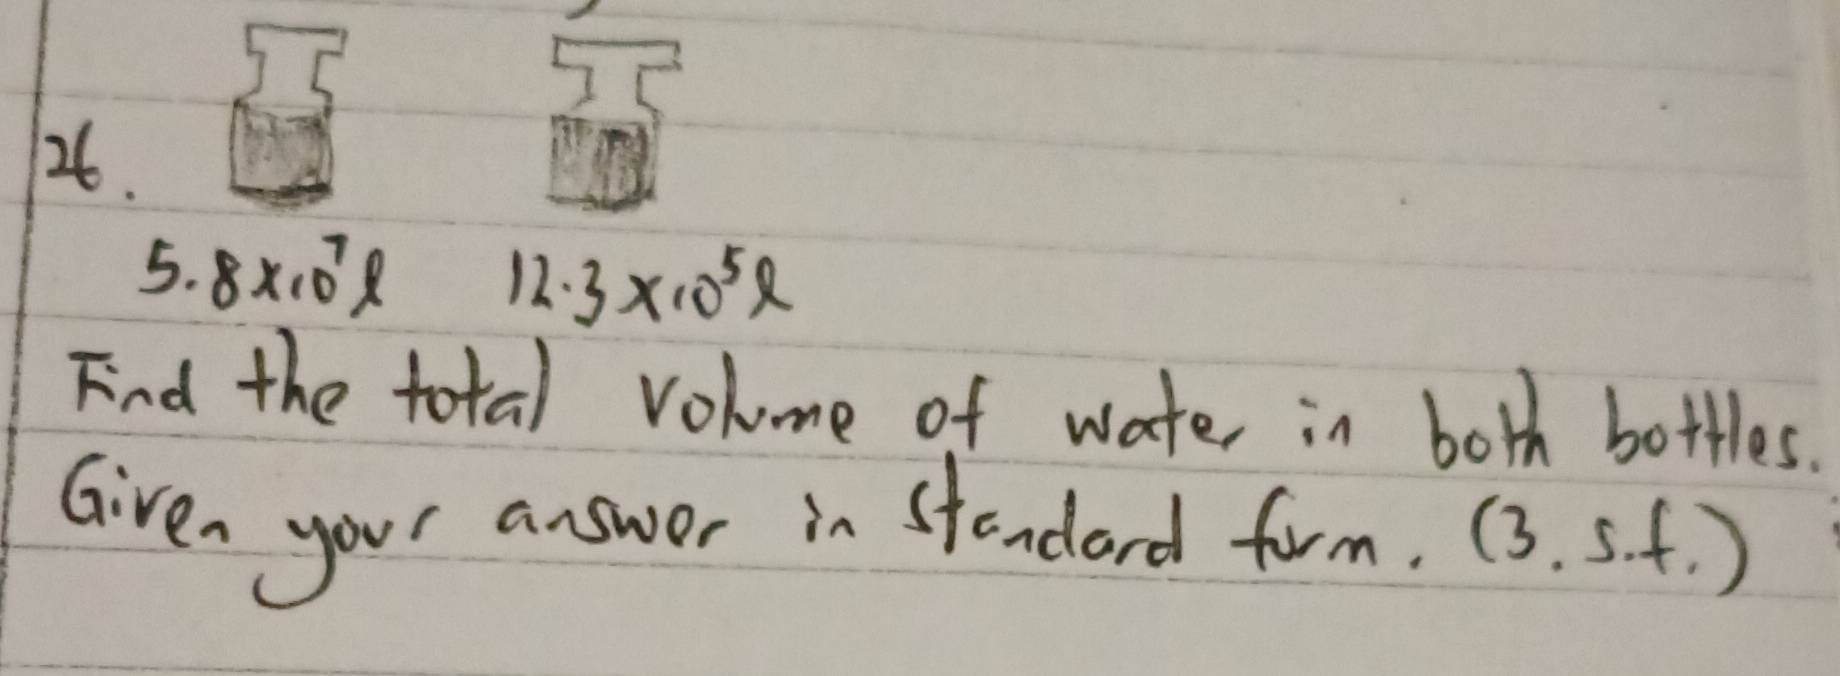 26.
5.8×10⁷ℓ 12.3×10⁵ℓ
Find the total volume of water in both bottles.
Given your answer in standard form. (3.s.f.)